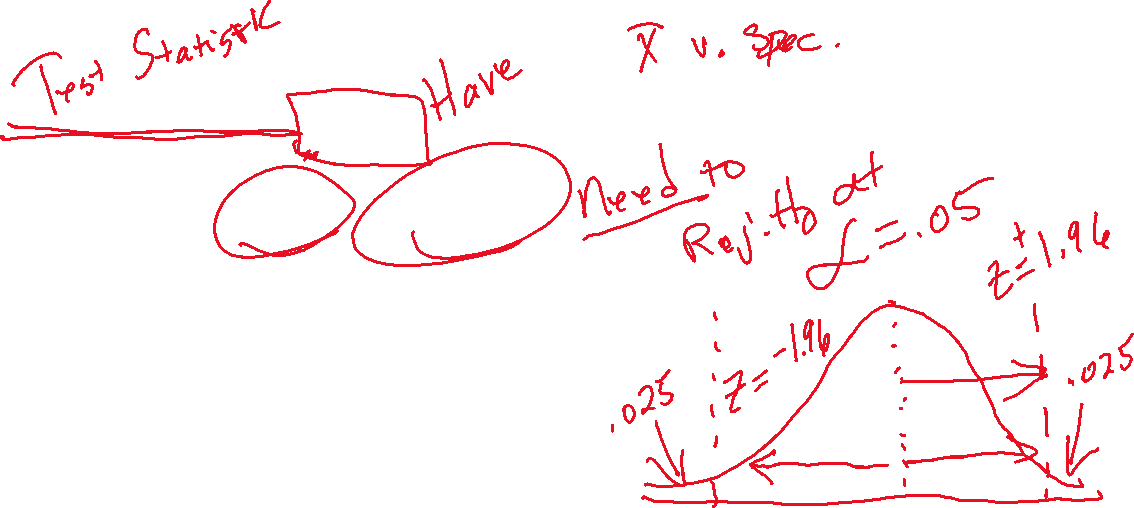 Test Statistic
X̄ v. Spec.
Have
Need to
Rej. Ho at
α = .05
z = +1.96
z = -1.96
.025
.025